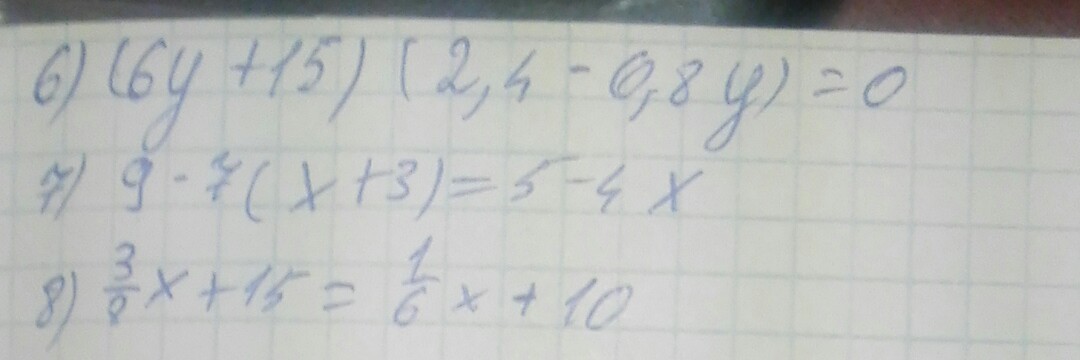 6) (6y + 15) (2,4 - 0,8y) = 0
7) 9 - 7(x + 3) = 5 - 4x
8) 3/8 x + 15 = 1/6 x + 10